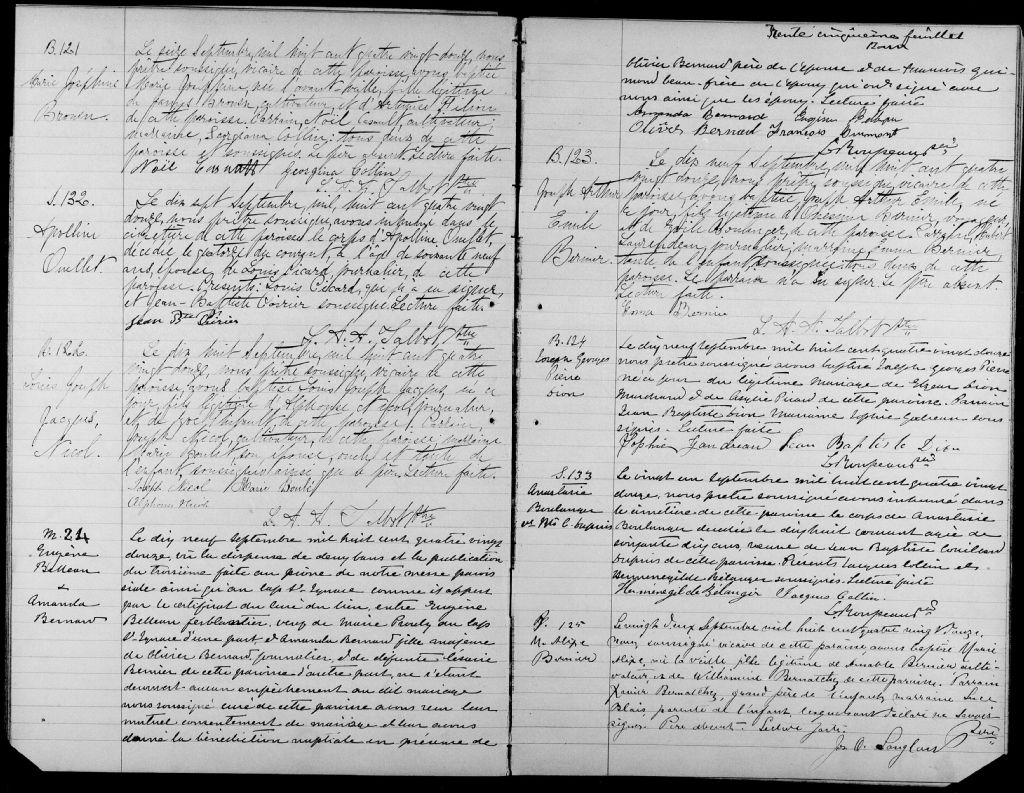 B.121
Marie Joséphine
Brown.
Le seize Septembre, mil huit cent quatre vingt douze, nous
prêtre soussigné, vicaire de cette paroisse, avons baptisé
Marie Joséphine, née l'avant-veille, fille légitime
de James Brown, cultivateur, et d'
de cette paroisse. Parrain, Noël cultivateur;
marraine, Georgiana Collin; tous deux de cette
paroisse et soussignés. Le père absent. Lecture faite.
Noël Georgina Collin
L. A. A. Talbot Ptre
S.132.
Apolline
Ouellet.
Le dix sept Septembre, mil huit cent quatre vingt
douze, nous prêtre soussigné, avons inhumé dans le
cimetière de cette paroisse le corps d'Apolline Ouellet,
décédée le quatorze du courant, à l'âge de soixante neuf
ans, épouse de Louis Picard, journalier, de cette
paroisse. Présents: Louis Picard, qui n'a su signer,
et Jean-Baptiste Poirier soussigné. Lecture faite.
Jean Bte Poirier
L. A. A. Talbot Ptre
B. 122.
Louis Joseph
Jacques,
Nicol.
Le dix huit Septembre, mil huit cent quatre
vingt douze, nous prêtre soussigné, vicaire de cette
paroisse, avons baptisé Louis Joseph Jacques, né ce
jour, fils légitime d'Alphonse Nicol, journalier,
et de Zoé de cette paroisse. Parrain,
Joseph Nicol, cultivateur, de cette paroisse, marraine
Marie Boulet son épouse, oncle et tante de
l'enfant, soussignés ainsi que le père. Lecture faite.
Joseph Nicol Marie Boulet
Alphonse Nicol
L. A. A. Talbot Ptre
M. 24
Eugène
Belleau
&
Amanda
Bernard
Le dix neuf septembre mil huit cent quatre vingt
douze, vu la dispense de deux bans et la publication
du troisième faite au prône de notre messe parois
siale ainsi qu'au Cap St. Ignace comme il appert
par le certificat du curé du lieu, entre Eugène
Belleau ferblantier, veuf de Marie du Cap
St. Ignace d'une part, et Amanda Bernard fille majeure
de Olivier Bernard, journalier, et de défunte Césarie
Bernier de cette paroisse d'autre part, ne s'étant
découvert aucun empêchement au dit mariage
nous soussigné curé de cette paroisse avons reçu leur
mutuel consentement de mariage et leur avons
donné la bénédiction nuptiale en présence de
Trente cinquième feuillet
Olivier Bernard père de l'épouse et de François Gui-
mond beau-frère de l'époux qui ont signé avec
nous ainsi que les époux. Lecture faite
Amanda Bernard Eugène Belleau
Olivier Bernard François Guimont
B. 123.
Joseph Arthur
Emile
Bernier.
Le dix neuf Septembre, mil huit cent quatre
vingt douze, nous prêtre soussigné, vicaire de cette
paroisse, avons baptisé Joseph Arthur Emile, né
ce jour, fils légitime d'Onésime Bernier, voyageur,
et de Zoé Boulanger, de cette paroisse. Parrain, Hubert
journalier; marraine, Emma Bernier
tante de l'enfant, soussignée; tous deux de cette
paroisse. Le parrain n'a su signer. Le père absent.
Lecture faite.
Emma Bernier
L. A. A. Talbot Ptre
B. 124
Joseph Georges
Pierre
Dion
Le dix neuf septembre mil huit cent quatre vingt douze
nous prêtre soussigné avons baptisé Joseph Georges Pierre
né ce jour du légitime mariage de Elzéar Dion
Marchand et de Picard de cette paroisse. Parrain
Jean Baptiste Dion Marraine Sophie sous
signés. Lecture faite
Sophie Jean Baptiste Dion
S. 133
Anastasie
Boulanger
Le vingt un septembre mil huit cent quatre vingt
douze, nous prêtre soussigné avons inhumé dans
le cimetière de cette paroisse le corps de Anastasie
Boulanger décédée le dix huit courant âgée de
soixante dix ans, veuve de Jean Baptiste Couillard
Dupuis de cette paroisse. Présents Jacques Collin et
Hermenegilde Bélanger soussignés. Lecture faite
Hermenegilde Bélanger Jacques Collin
B. 125
M. Alixe
Bernier
Le vingt deux Septembre mil huit cent quatre vingt douze,
nous soussigné vicaire de cette paroisse avons baptisé Marie
Alixe, née la veille fille légitime de Amable Bernier culti-
vateur et de Wilhelmine Bernatchez de cette paroisse. Parrain
Xavier Bernatchez, grand père de l'enfant, marraine Luce
Blais, parente de l'enfant, lesquels ont déclaré ne savoir
signer. Père absent. Lecture faite.
Jos. O. Langlais Ptre